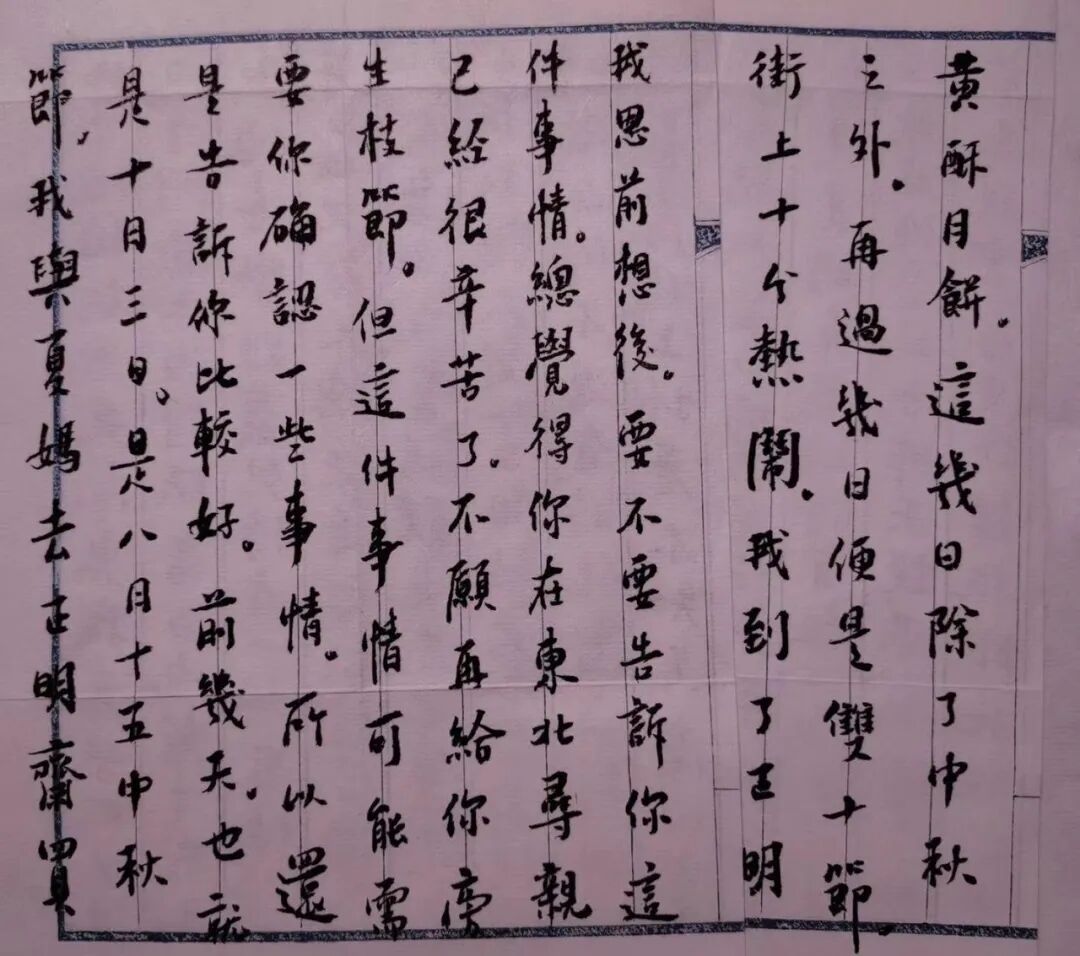 我思前想後。要不要告訴你這
件事情。總覺得你在東北尋親
已經很辛苦了。不願再給你旁
生枝節。但這件事情可能需
要你确認一些事情。所以還
是告訴你比較好。前幾天。也就
是十月三日。是八月十五中秋
節，我與夏媽去正明齋買
黄酥月餅。這幾日除了中秋
之外。再過幾日便是雙十節。
街上十分熱鬧。我到了正明